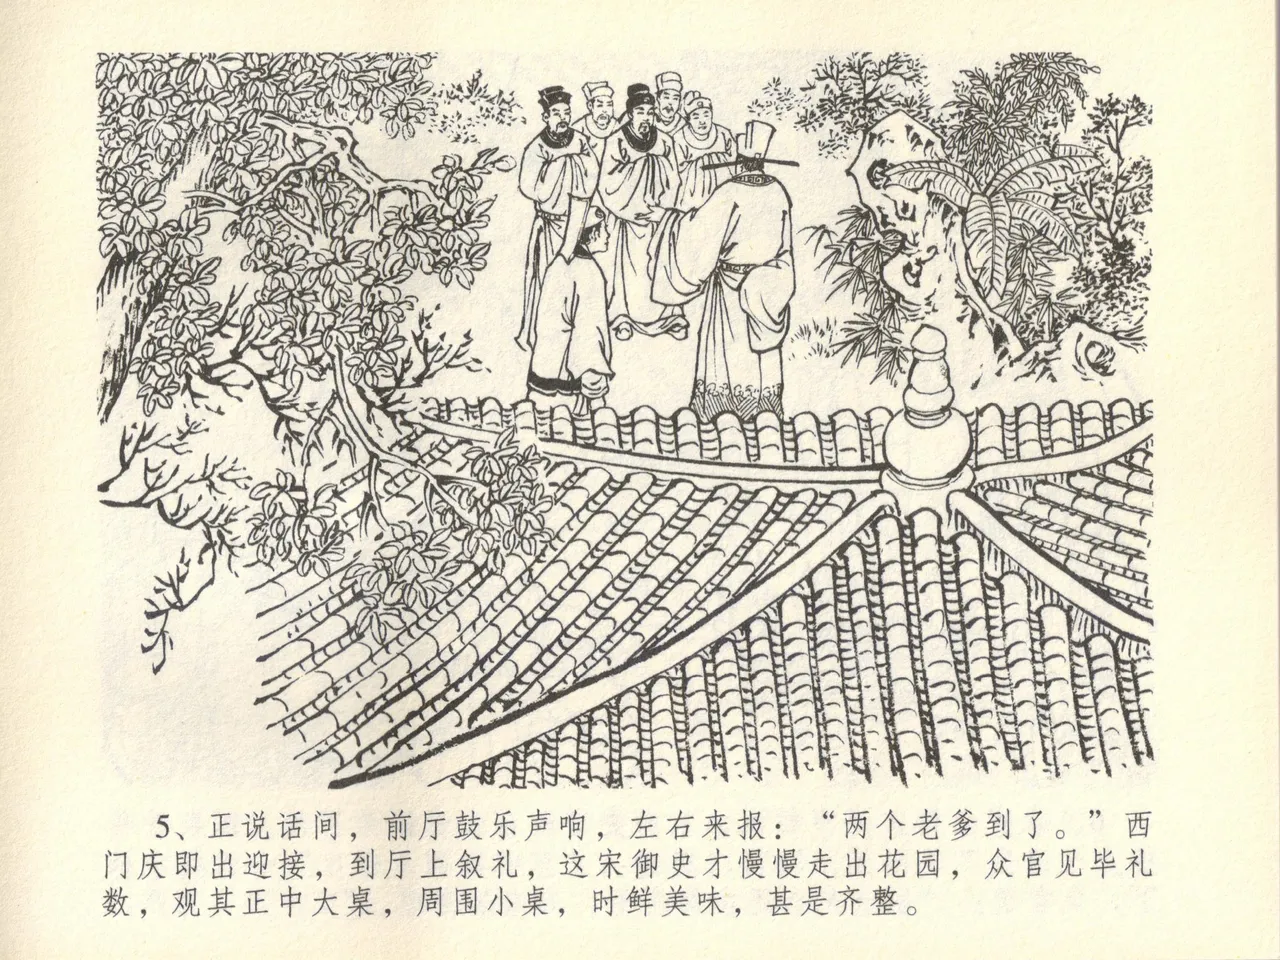 5、正说话间，前厅鼓乐声响，左右来报：“两个老爹到了。”西
门庆即出迎接，到厅上叙礼，这宋御史才慢慢走出花园，众官见毕礼
数，观其正中大桌，周围小桌，时鲜美味，甚是齐整。